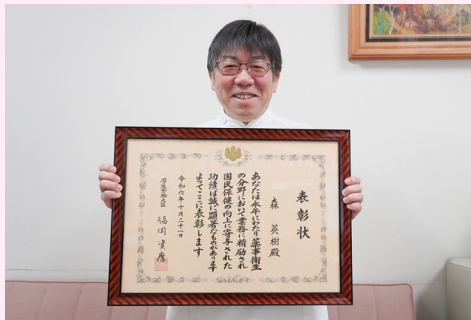 表彰状
森 英樹殿
あなたは永年にわたり薬事衛生
の分野において業務に精励され
国民保健の向上に寄与された
功績は誠に顕著なものがあります
よってここに表彰します
令和六年十月二十一日
厚生労働大臣 福岡資麿